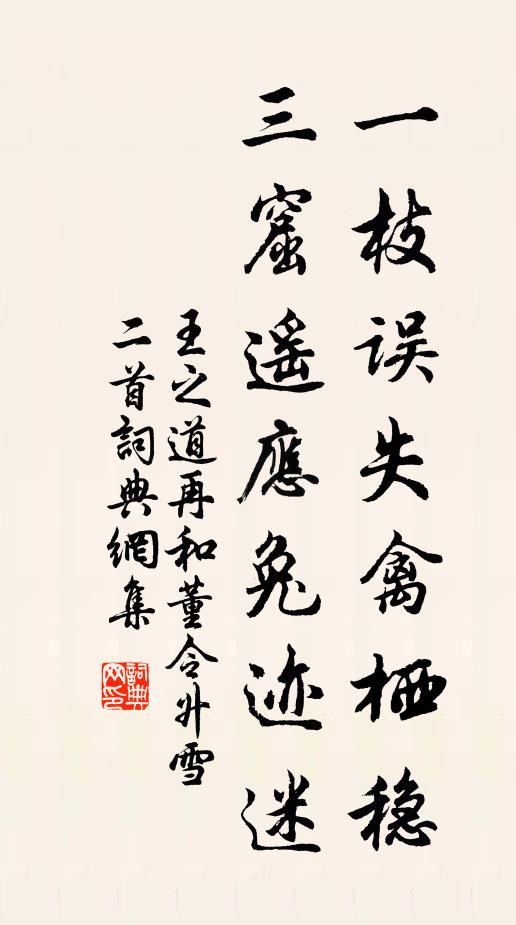 一枝误失禽栖稳
三窟遥應兔迹迷
王之道再和董令升雪
二首詞典網集
詞典网印